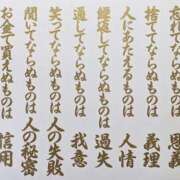 忘れてならぬものは 恩義
捨ててならぬものは 義理
人にあたえるものは 人情
繰返してならぬものは 過失
通してならぬものは 我意
笑ってならぬものは 人の失敗
聞いてならぬものは 人の秘密
お金で買えぬものは 信用